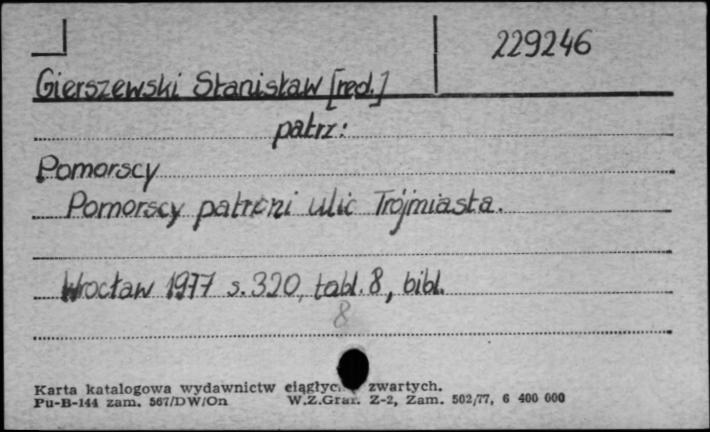 229246
Gierszewski Stanisław [red.]
patrz:
Pomorscy
Pomorscy patroni ulic Trójmiasta.
Wrocław 1977 s. 320, tabl. 8, bibl.
8
Karta katalogowa wydawnictw zwartych.
Pu-B-144 zam. 567/DW/On W.Z.Graf. Z-2, Zam. 502/77, 6 400 000